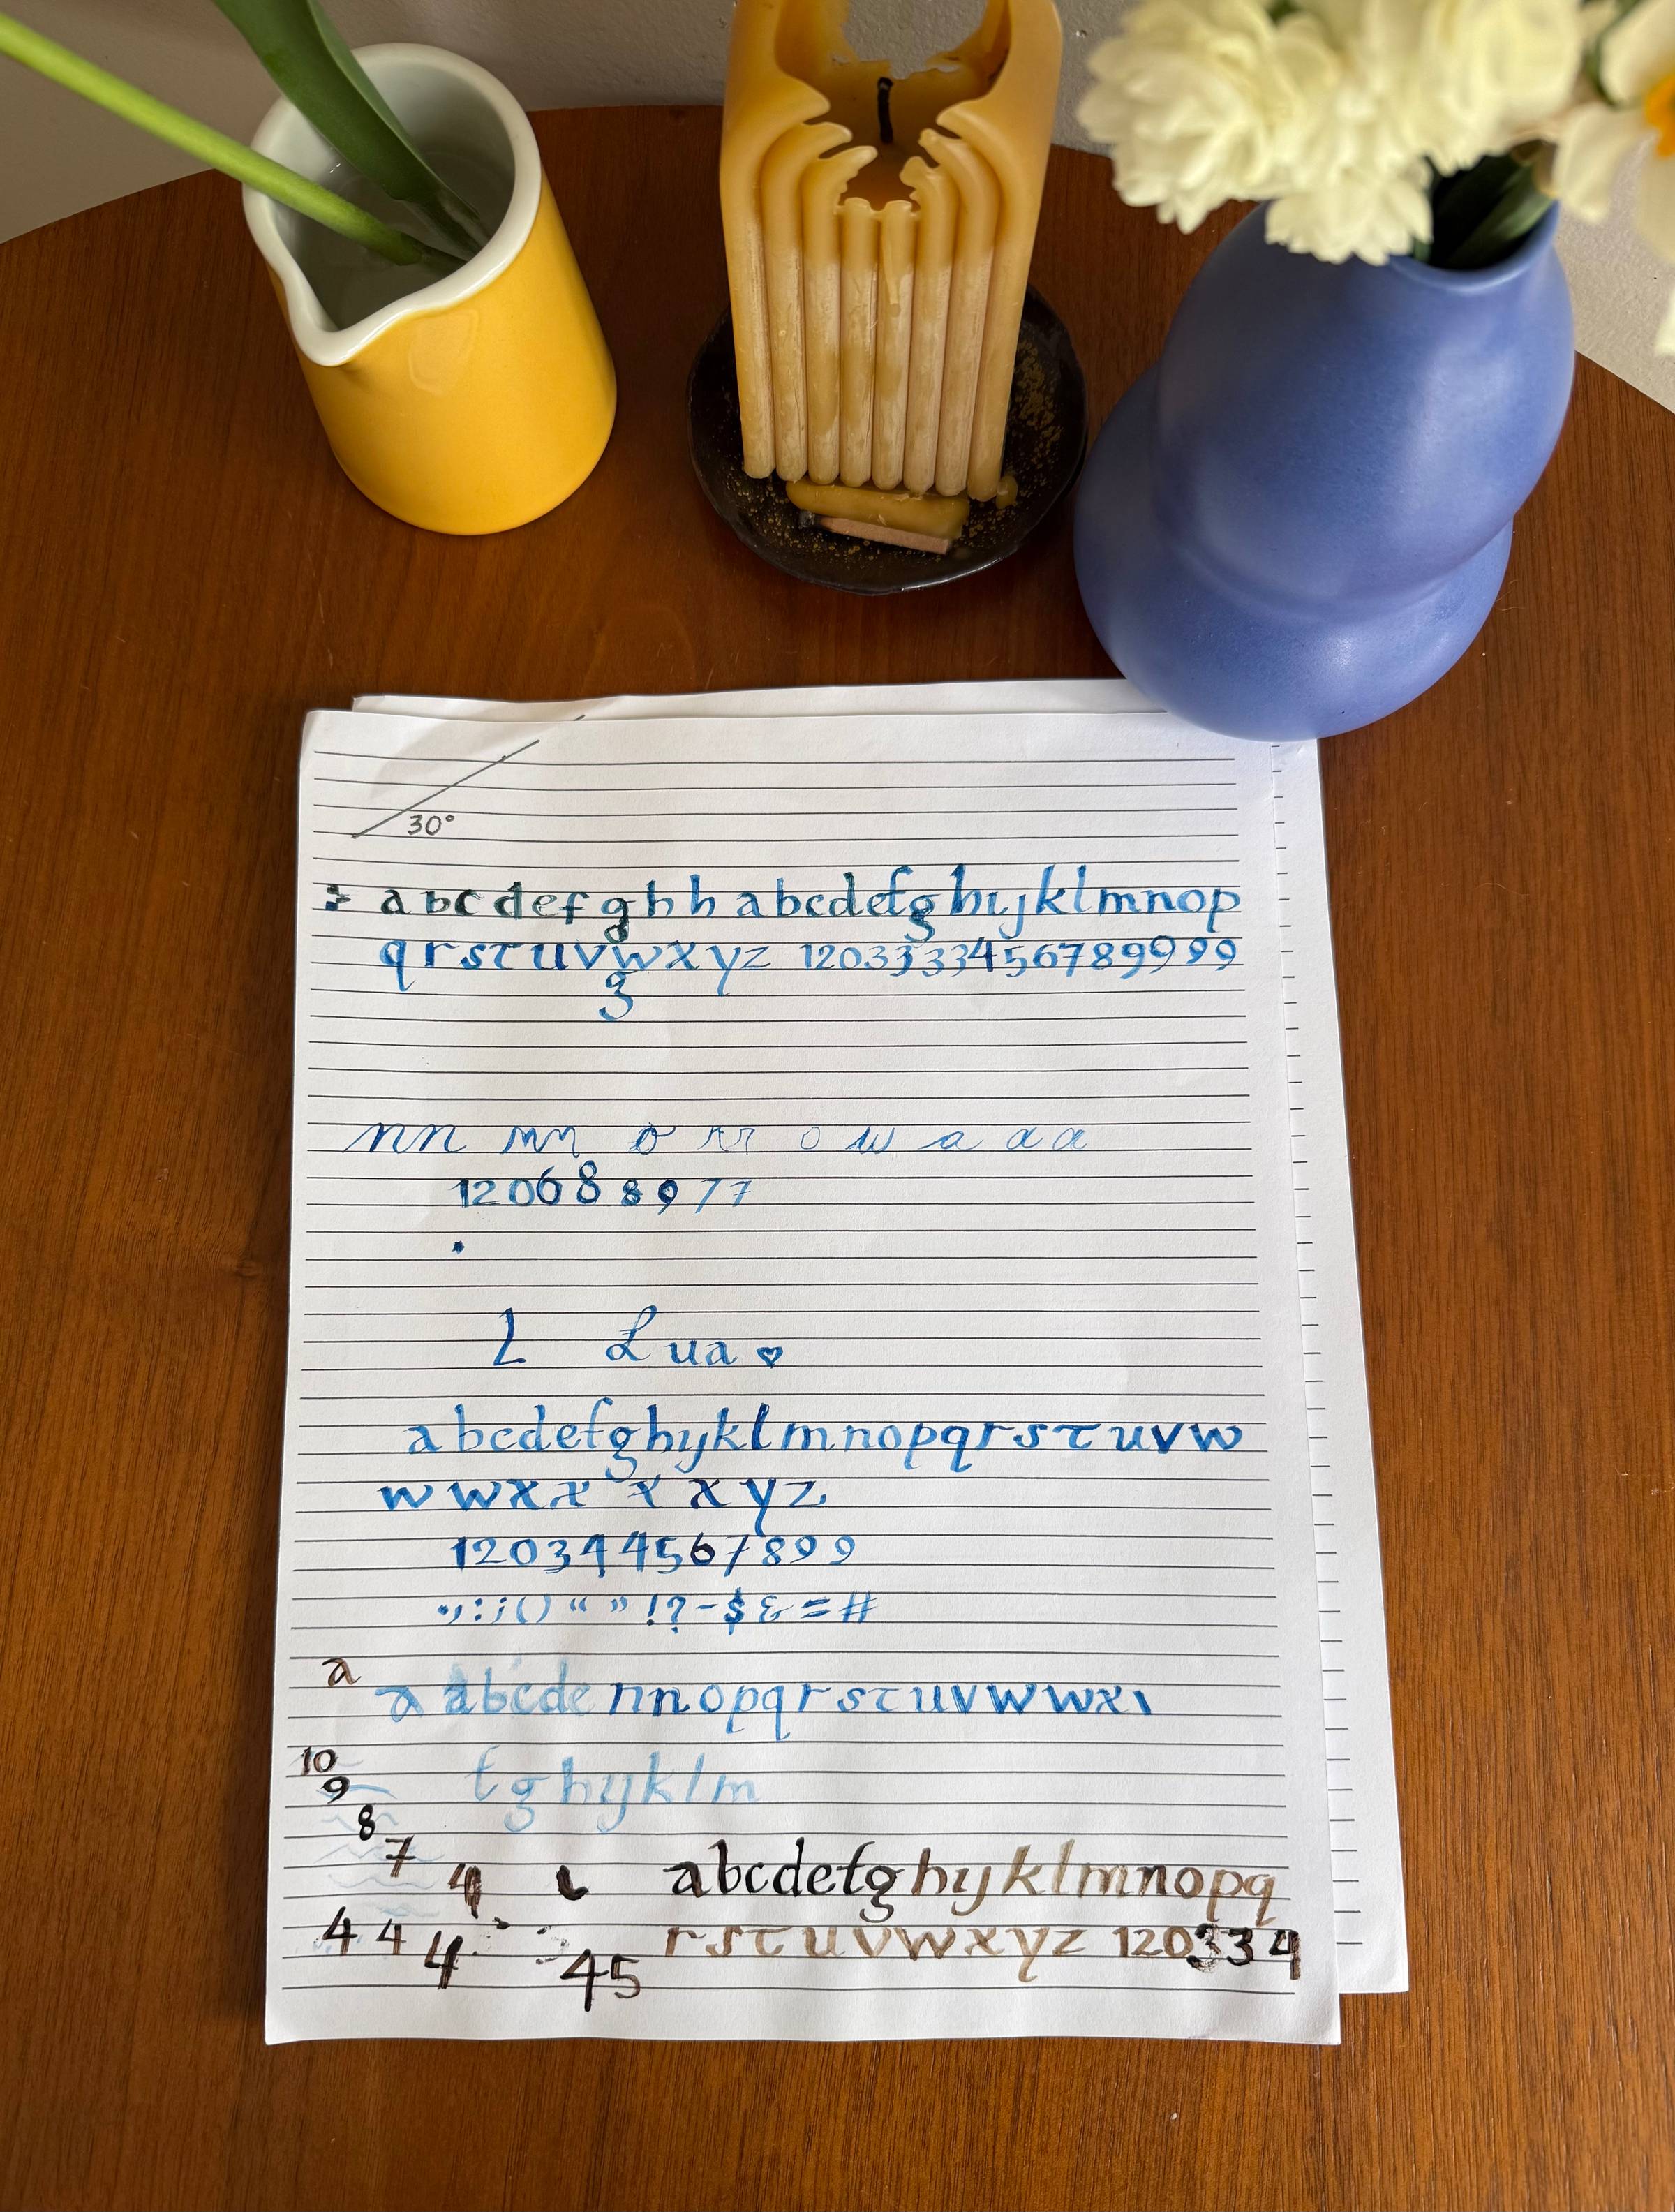 30°
a b c d e f g h h a b c d e f g h i j k l m n o p
q r s t u v w x y z 1 2 0 3 3 3 3 4 5 6 7 8 9 9 9 9
g
n n m n o r r o w a a a
1 2 0 6 8 8 9 7 7
L Lua ♥
a b c d e f g h i j k l m n o p q r s t u v w
w w x x x x y z
1 2 0 3 4 4 5 6 7 8 9 9
. , : ; ( ) “ ” ! ? - $ & = #
a
a a b c d e n n o p q r s t u v w w x
10
f g h i j k l m
9
8
7
4 a b c d e f g h i j k l m n o p q
4 4 4 r s t u v w x y z 1 2 0 3 3 4
4 5